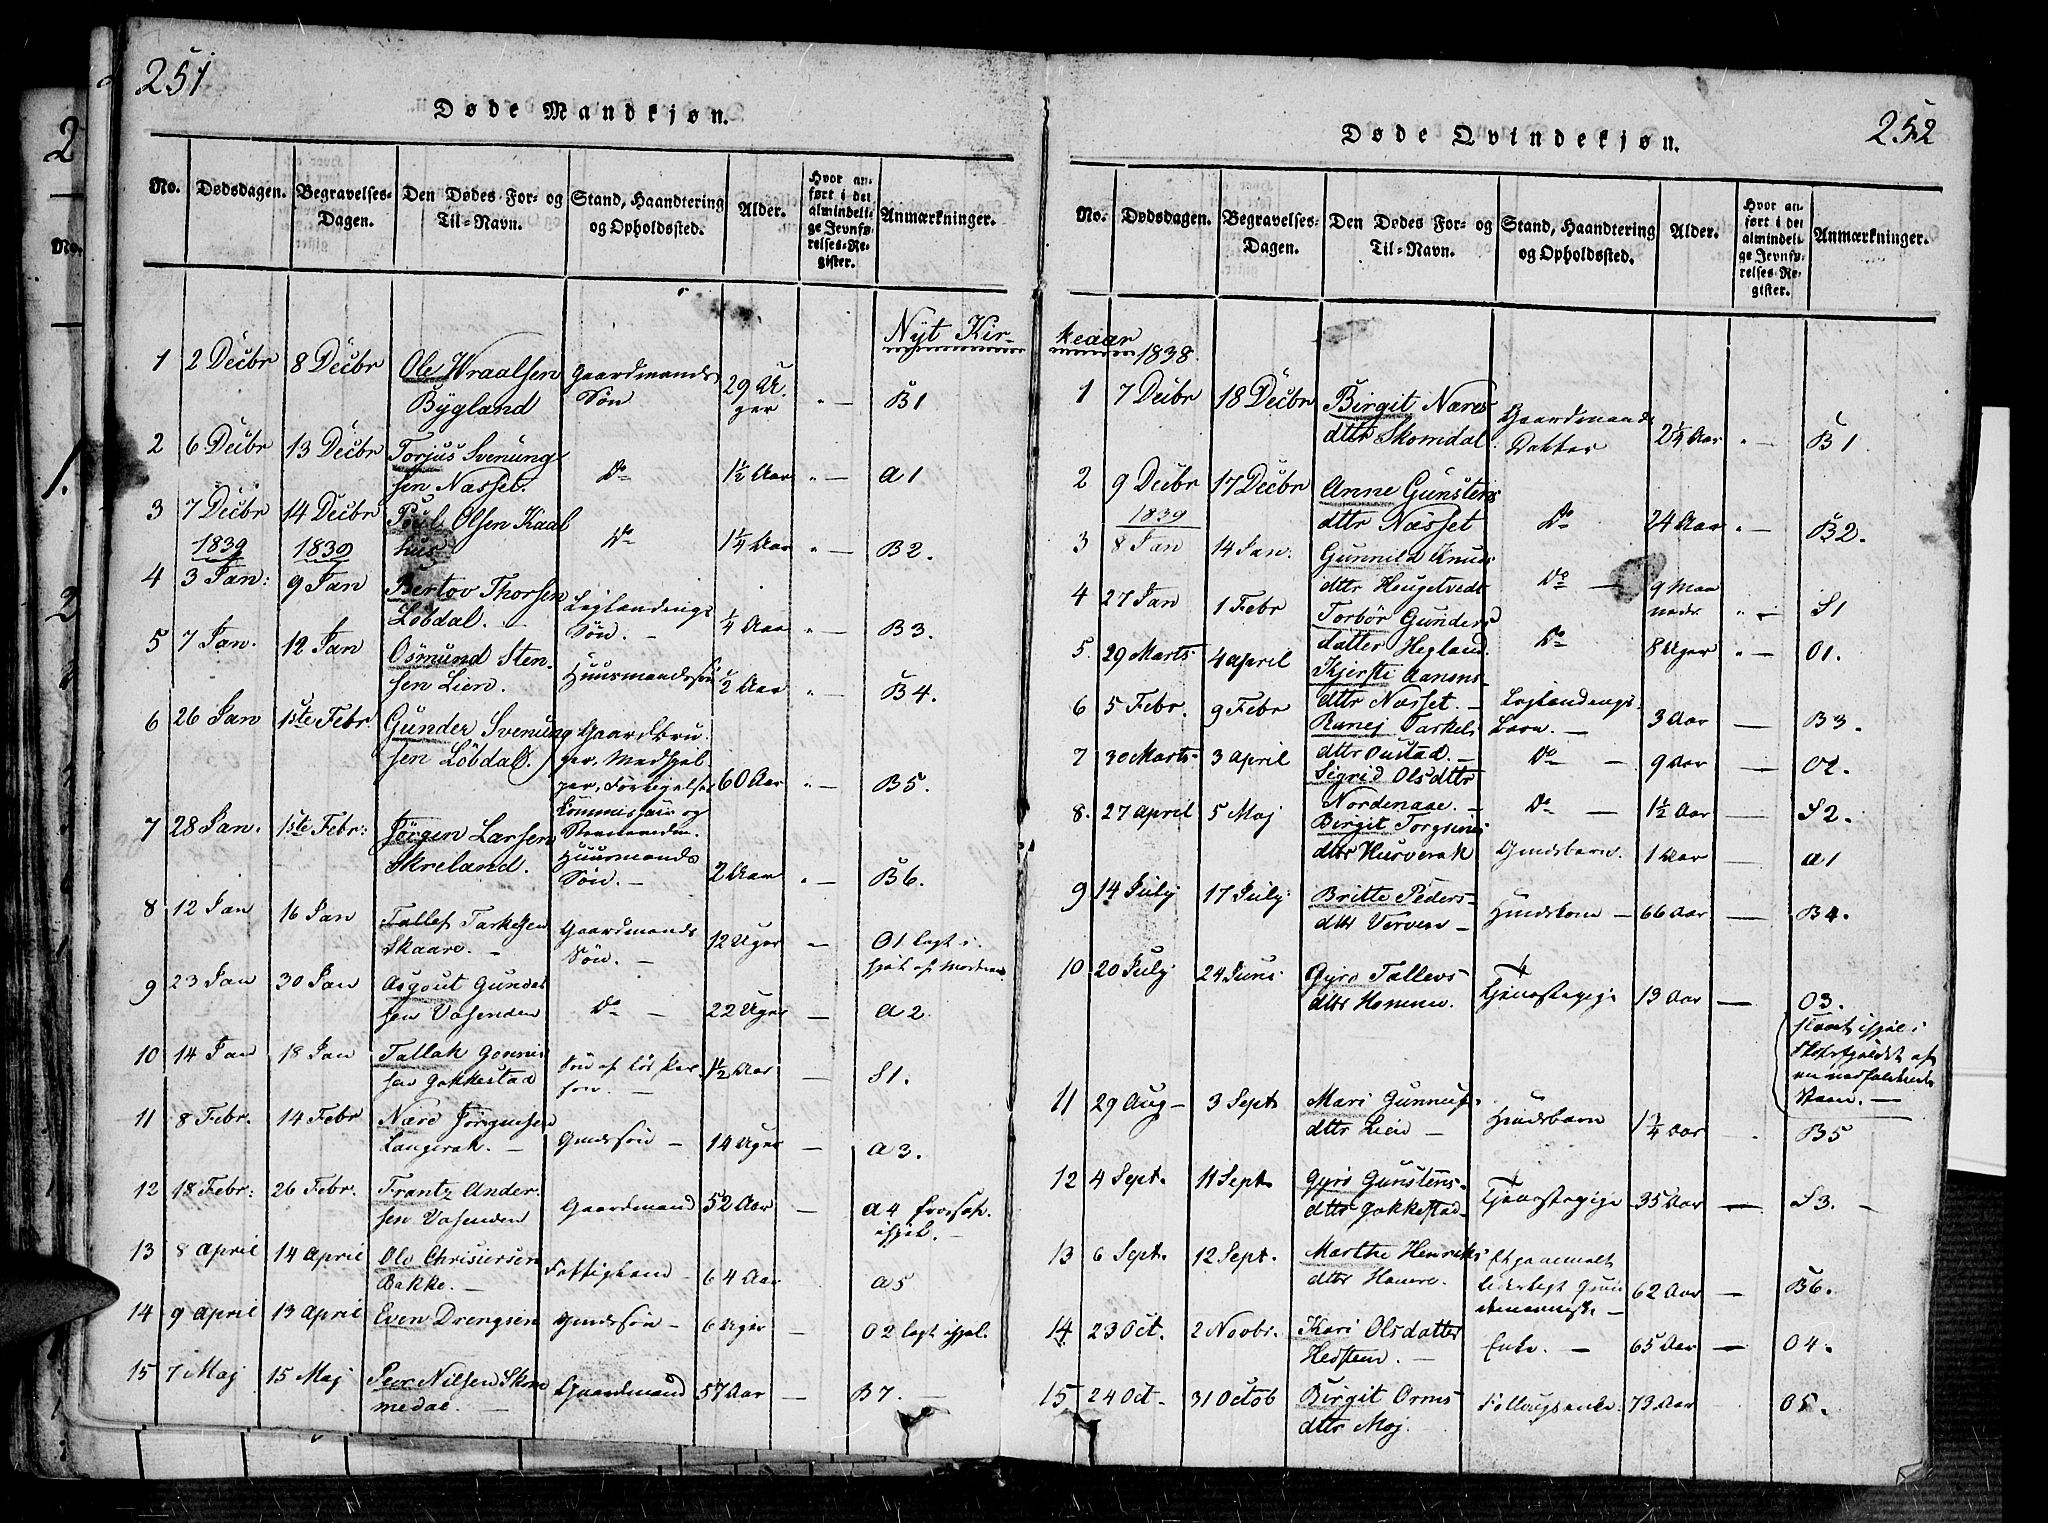 251
Døde Mandkjøn.
No. Dødsdagen. Begravelses-Dagen. Den Dødes For- og Til-Navn. Stand, Haandtering og Opholdssted. Alder. Hvor anført i det almindelige Jevnførelses-Register. Anmærkninger.
Nyt Kir-
1 2 Decbr 8 Decbr Ole Wraalsen Gaardmands 29 U-
Bygland Søn ger " — B1
2 6 Decbr 13 Decbr Torjus Svenung-
sen Næsset. Do 1½ Aar " — A1
3 7 Decbr 14 Decbr Poul Olsen Kaal
hus Do 1¼ Aar " — B2.
1839 1839
4 3 Jan: 9 Jan Bertov Thorsen Leglændings
Løbdal. — Søn. — ¼ Aar " — B3.
5 7 Jan. 12 Jan Osmund Sten-
sen Lien. Huusmandssøn ½ Aar " — B4.
6 26 Jan 1ste Febr Gunder Svenung Gaardbru-
sen Løbdal. ger, Medhjel-
per, Forligelses 60 Aar " — B5.
Commissair og
7 28 Jan. 1ste Febr: Jørgen Larsen
Skreland. Huusmands
Søn. — 2 Aar " — B6.
8 12 Jan 16 Jan Tallef Tarkelsen Gaardmands
Skaare. — Søn. — 12 Uger " O1 lagt i-
hjel af Moderen
9 23 Jan 30 Jan Asgout Gunder
sen Vasenden Do — 22 Uger — A2
10 14 Jan 18 Jan Tallak Gonnis Søn af løs Per-
sen Gakkestad son. — 1½ Aar — S1.
11 8 Febr. 14 Febr Nære Jørgensen
Langerak. — Gmdssøn — 14 Uger — A3.
12 18 Febr: 26 Febr. Frantz Ander-
sen Vasenden Gaardmand 52 Aar — A4 frøs
ihjel. —
13 8 April 14 April Ole Christensen
Bakke. — Fattiglem 64 Aar — A5
14 9 April 13 April Even Drengsen Gmdssøn — 6 Uger — O2 lagt ihjel.
15 7 Maj 15 Maj Peer Nilsen Skom
medal. — Gaardmand 57 Aar — B7. —
252
Døde Qvindekjøn.
No. Dødsdagen. Begravelses-Dagen. Den Dødes For- og Til-Navn. Stand, Haandtering og Opholdssted. Alder. Hvor anført i det almindelige Jevnførelses-Register. Anmærkninger.
keaar
1838.
1 7 Decbr 18 Decbr Birgit Næres Gaardmands
dttr Skomdal. Datter 2¼ Aar " — B1
2 9 Decbr 17 Decbr Anne Gunstens
dttr Næsset Do 24 Aar " — B2.
1839
3 8 Jan 14 Jan: Gunnild Knuds
dttr Heugetvedt Do — 9 Maa
neder. " — S1
4 27 Jan 1 Febr Torbør Gunders
datter Hegland. Do 8 Uger " — O1.
5. 29 Marts 4 April Kjersti Aanens-
dttr Næsset. — Leglændings-
barn. — 3 Aar — B3.
6 5 Febr. 9 Febr Ranej Tarkels
dttr Oustad. — Do — 9 Aar — O2.
7 30 Marts 3 April Sigrid Olsdttr
Nordenaae. — Do — 1½ Aar — S2.
8. 27 April 5 Maj Birgit Torgsens
dttr Hurverak Gmdsbarn. 1 Aar — A1
9 14 July 17 July Britte Peders-
dttr Verven — Hmdskone — 66 Aar — B4.
10 20 July 24 Juni Gyro Tallevs-
dttr Homme. Tjenestepige 13 Aar — O3.
slaaet ihjel i
af
en nedfaldende
Steen. —
11 29 Aug — 3 Sept Mari Gunnufs-
dttr Lien — Hmdsbarn 1¾ Aar — B5
12 4 Sept. 11 Sept. Gyro Gunstens-
dttr Gakkestad Tjenestepige 35 Aar — S3. —
13 6 Sept. 12 Sept. Marthe Henriks Et gammelt
dttr Homre.
62 Aar — B6.
14 23 Oct. 2 Novbr. Kari Olsdatter
Hedsteen. — Enke. — 65 Aar — O4.
15 24 Oct. 31 Octob Birgit Orms
dttr Moj. 73 Aar O5.